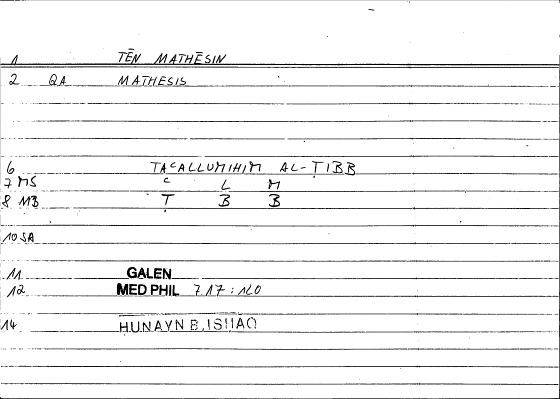 1 TĒN MATHĒSIN
2 QA MATHESIS
6 TAᶜALLUMIHIM AL-ṬIBB
7 MS ᶜ L M
8 MB Ṭ B B
10 SA
11 GALEN
12 MED PHIL 7.17 : 120
14 ḤUNAYN B. ISḤAQ